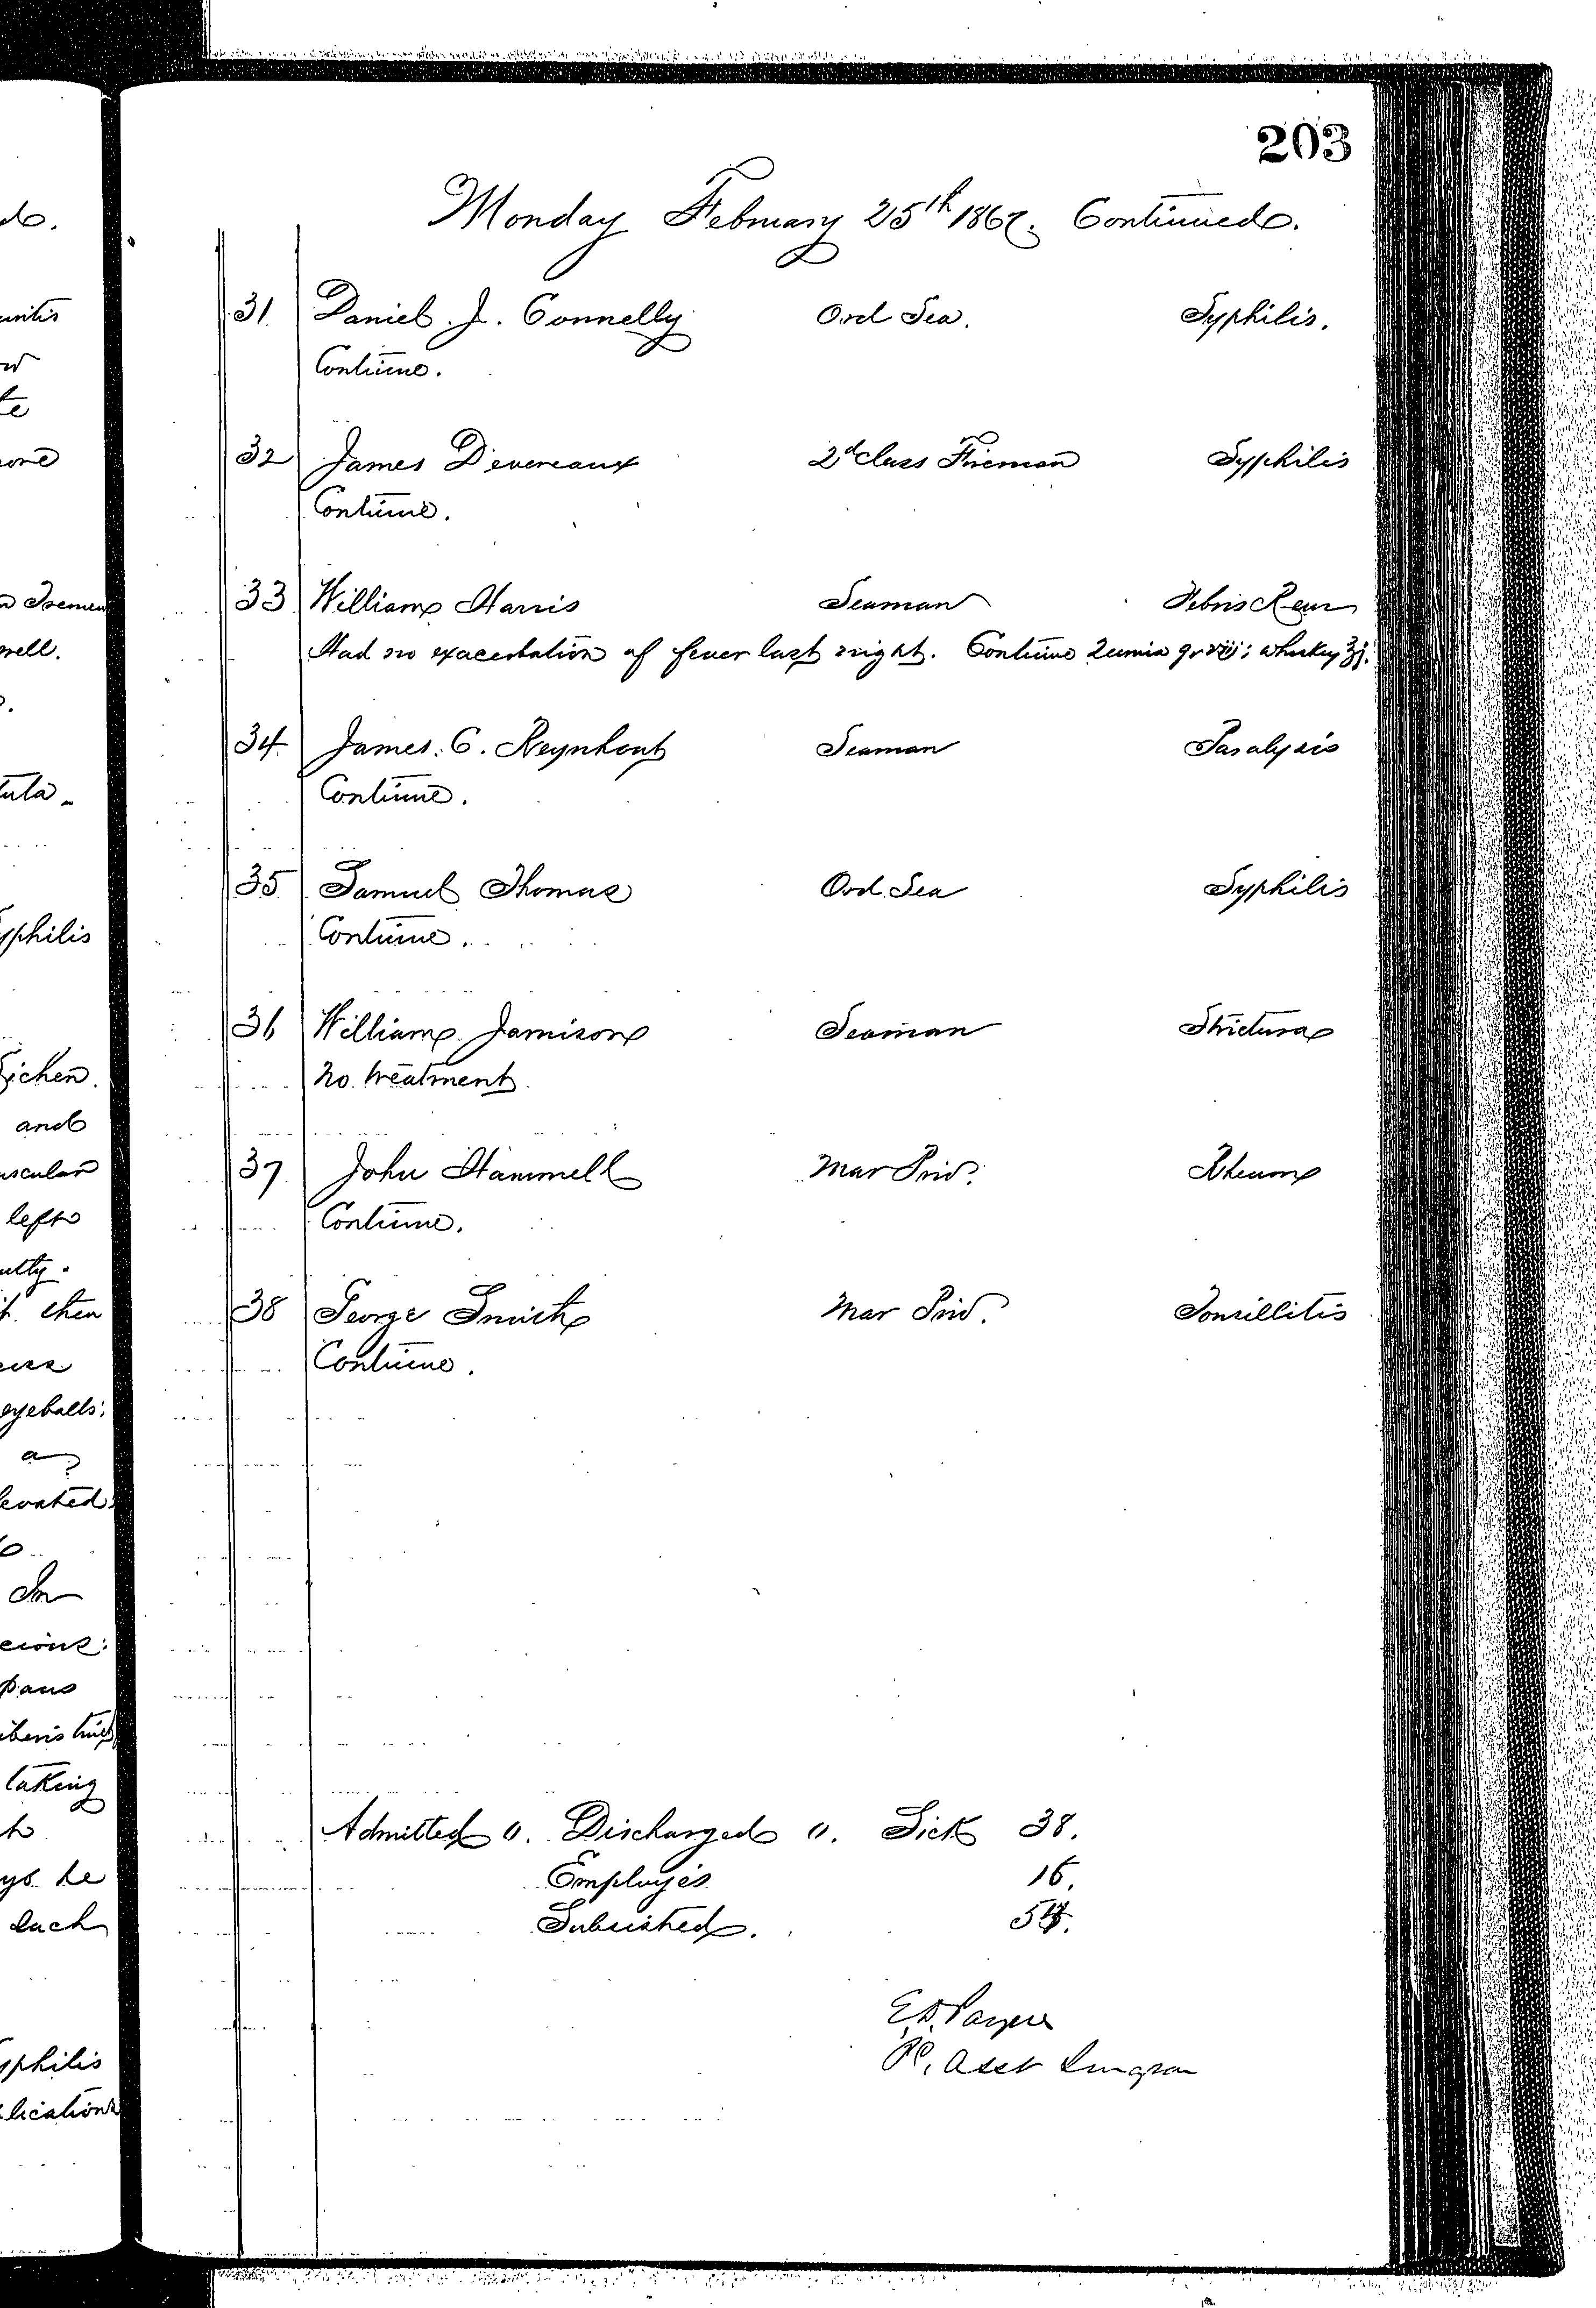 203
Monday February 25th 1867. Continued.
31 Daniel J. Connelly Ord Sea. Syphilis.
Continue.
32 James Devereaux 2d class Fireman Syphilis
Continue.
33 William Harris Seaman Febris Rem
Had no exacerbation of fever last night. Continue whiskey ℥j.
34 James. C. Reynhout Seaman Paralysis
Continue.
35 Samuel Thomas Ord. Sea Syphilis
Continue.
36 William Jamison Seaman Strictura
No treatment.
37 John Hammell Mar Priv. Rheum
Continue.
38 George Smith Mar Priv. Tonsillitis
Continue.
Admitted 0. Discharged 0. Sick 38.
Employés 16.
Subsisted. 54.
E.D. Payne
P. Asst Surgeon
do.
yphilis
Lichen.
and
uscular
left
then
eyeballs.
a
levated
In
taking
he
each
yphilis
lications